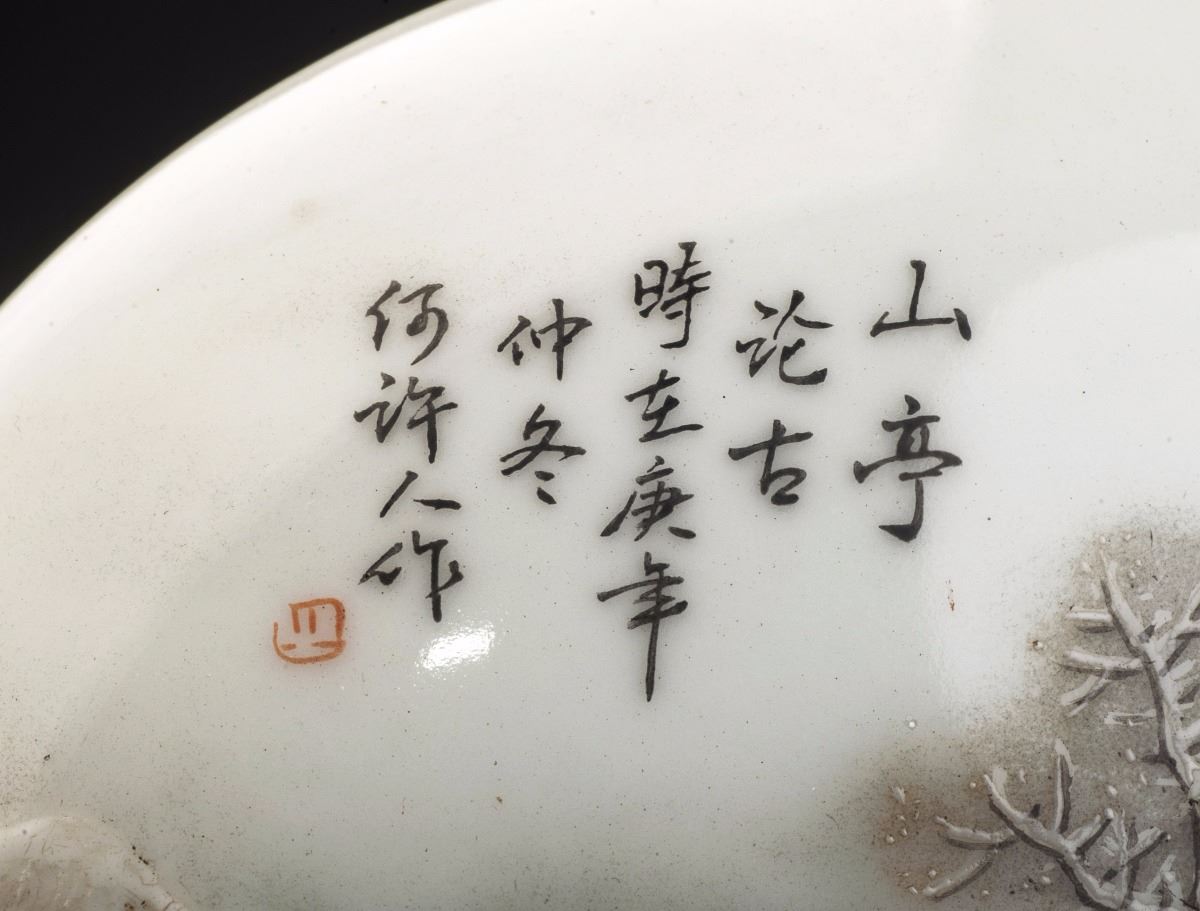 山亭
论古
時在庚年
仲冬
何許人作